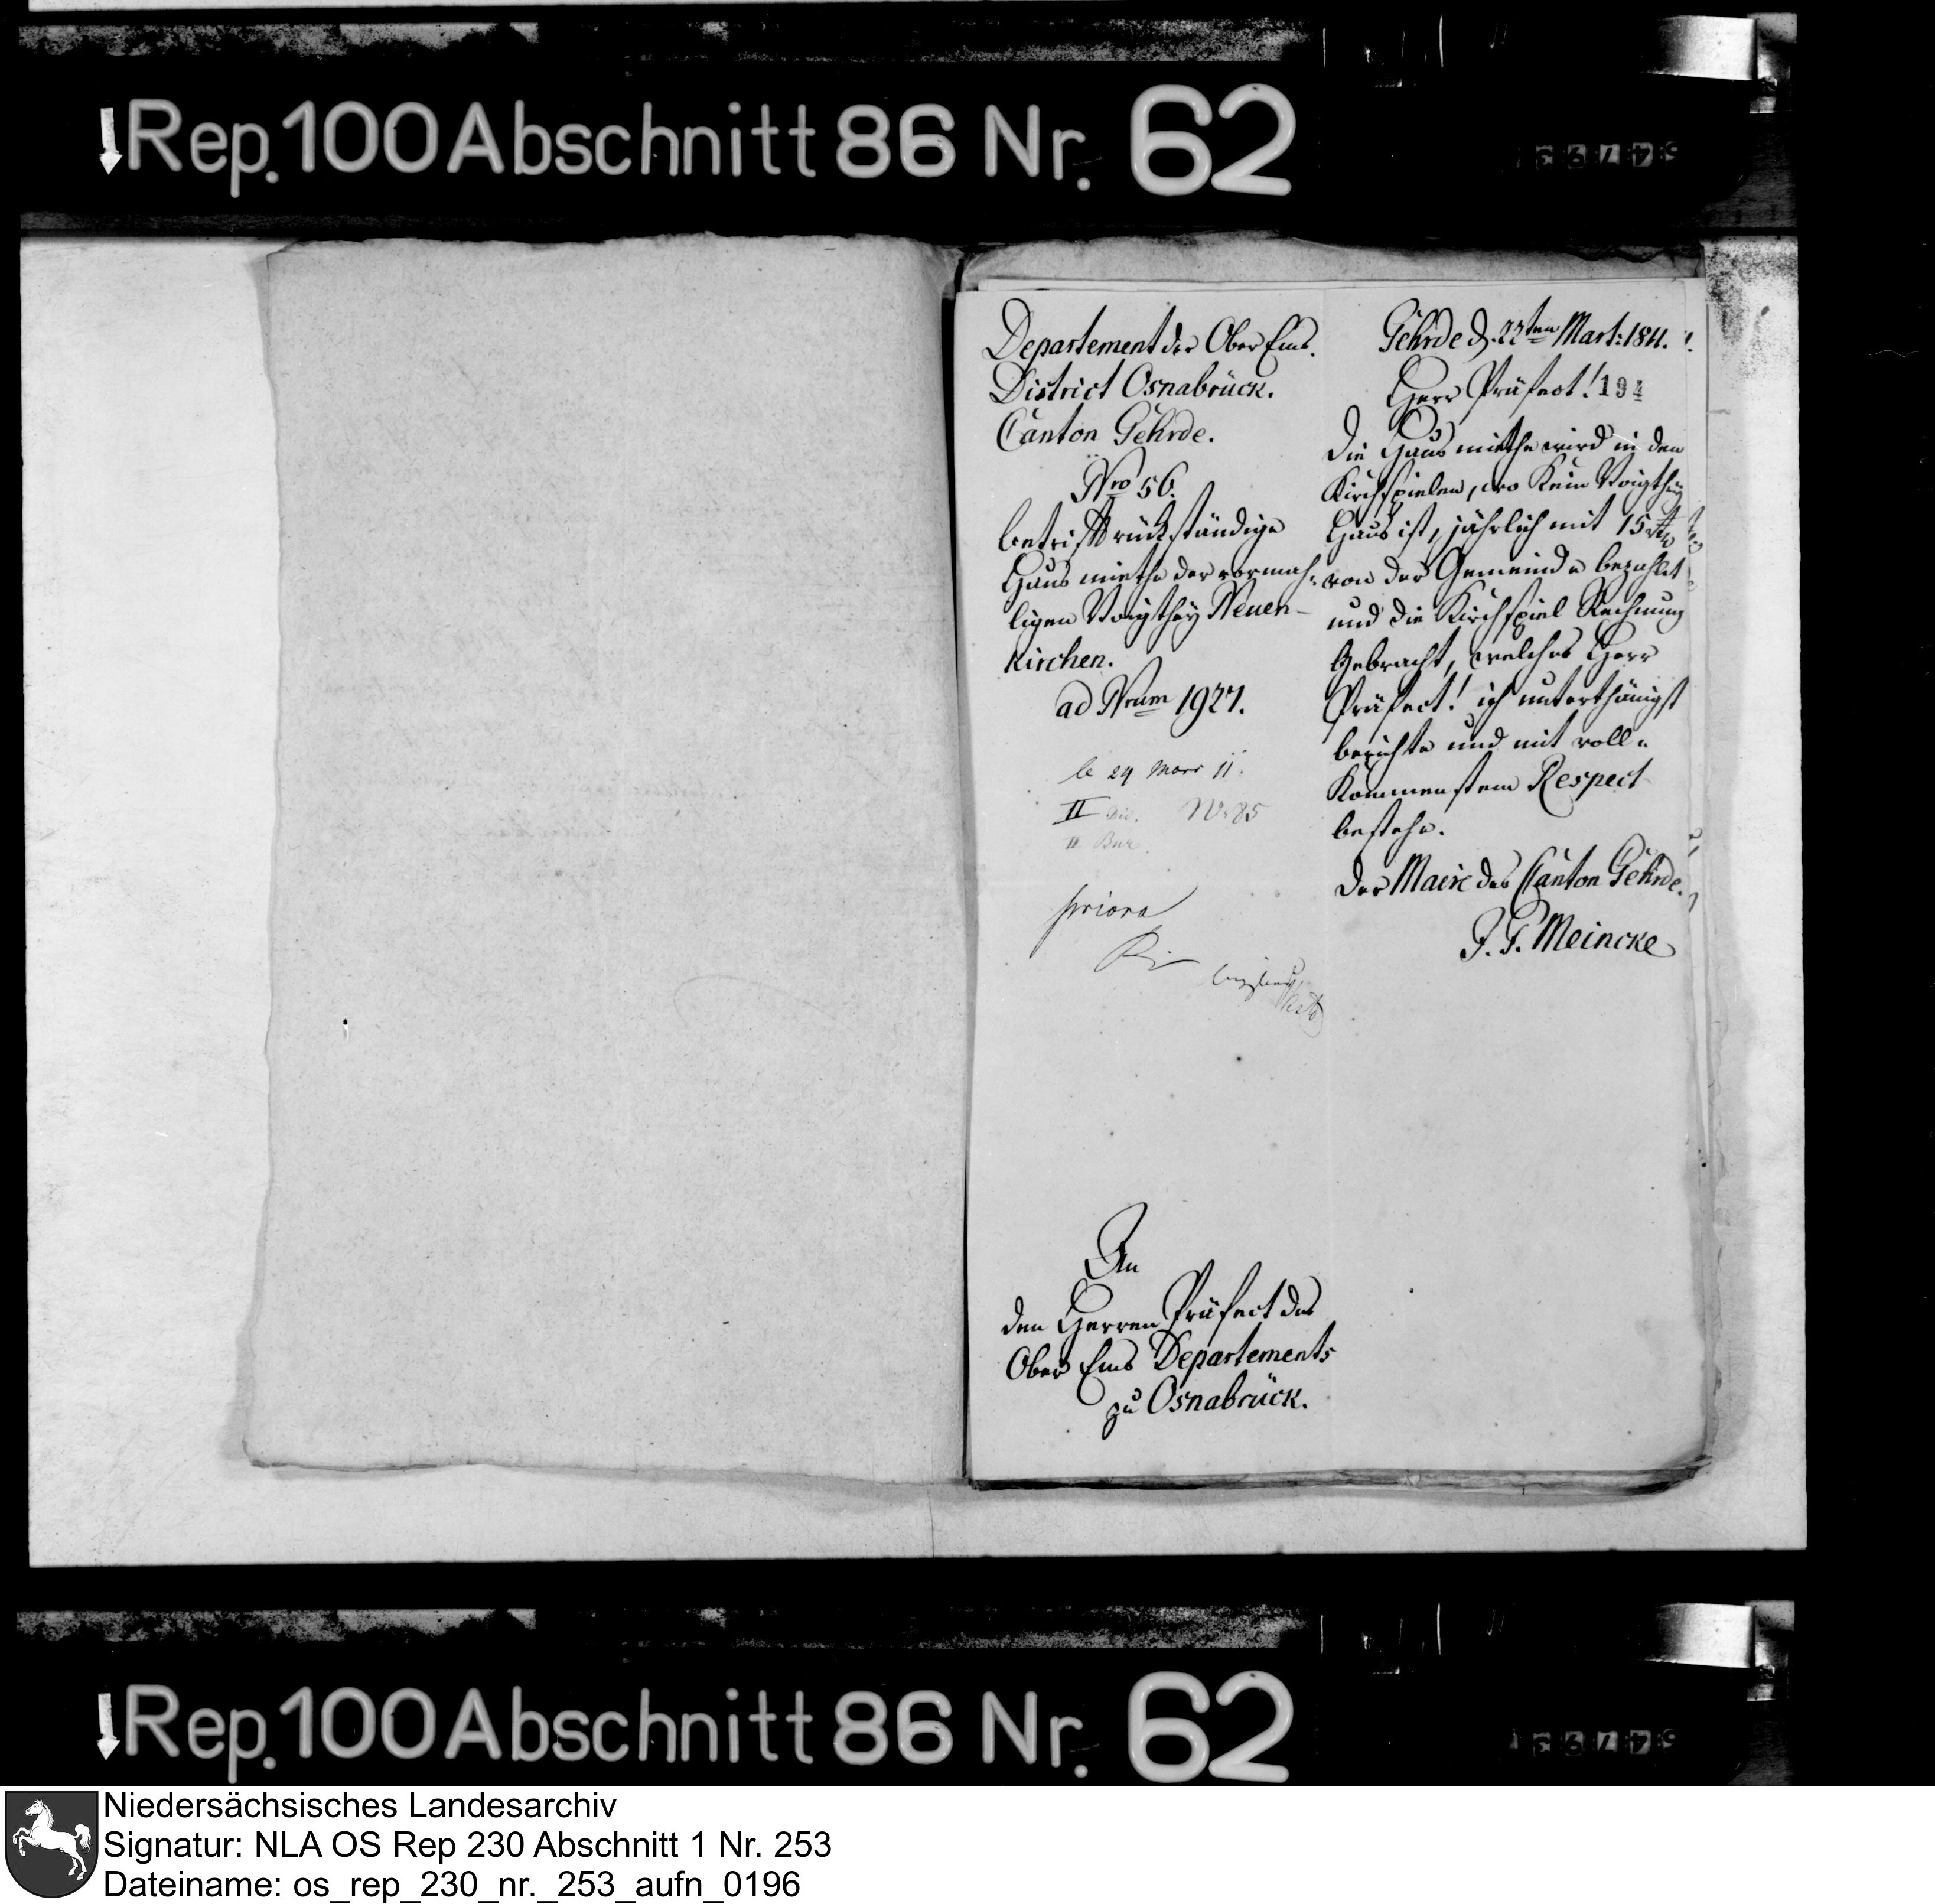 Rep. 100 Abschnitt 86 Nr. 62
Departement der Ober Ems.
District Osnabrück.
Canton Gehrde.
Nro 56.
betrifft rückständige
Haus miethe der vormah-
ligen Voigthey Neuen-
kirchen.
ad Nrum 1927.
le 24 Mars 11.
II Div. No 85
II Bur.
priora
Gehrde d. 22ten Mart: 1811.
Herr Präfect!
194
Die Haus miethe wird in den
Kirchspielen, wo Kein Voigthey
Haus ist, jährlich mit 15
von der Gemeinde bezahlt
und die Kirchspiel Rechnung
Gebracht, welches Herr
Präfect! ich unterthänigst
berichte und mit voll-
Kommenstem Respect
bestehe.
Der Maire des Canton Gehrde.
J. G. Meincke
An
den Herren Präfect des
Ober Ems Departements
zu Osnabrück.
Rep. 100 Abschnitt 86 Nr. 62
Niedersächsisches Landesarchiv
Signatur: NLA OS Rep 230 Abschnitt 1 Nr. 253
Dateiname: os_rep_230_nr._253_aufn_0196